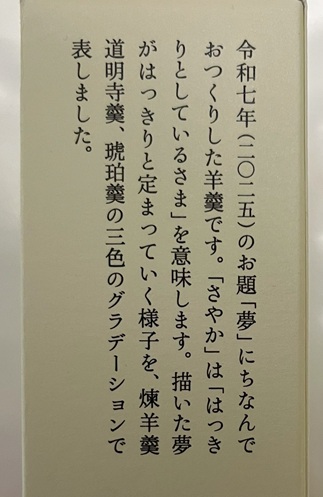 令和七年（二〇二五）のお題「夢」にちなんで
おつくりした羊羹です。「さやか」は「はっき
りとしているさま」を意味します。描いた夢
がはっきりと定まっていく様子を、煉羊羹
道明寺羹、琥珀羹の三色のグラデーションで
表しました。